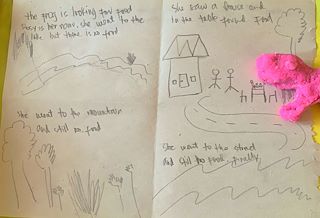 the frog is looking for food
her name. she went to the
lake but there is no food
She went to the mountain
and still no food
She saw a house and
in the table found food
She went to the street
and still no food. finally